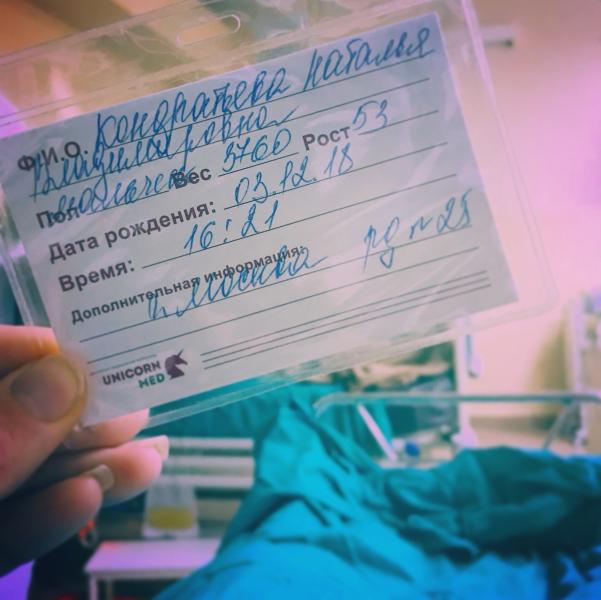 Ф.И.О. Кондратьева Наталья
Владимировна
Пол мальчик Вес 3760 Рост 53
Дата рождения: 03.12.18
Время: 16:21
Дополнительная информация:
г. Москва рд № 25
UNICORN
MED